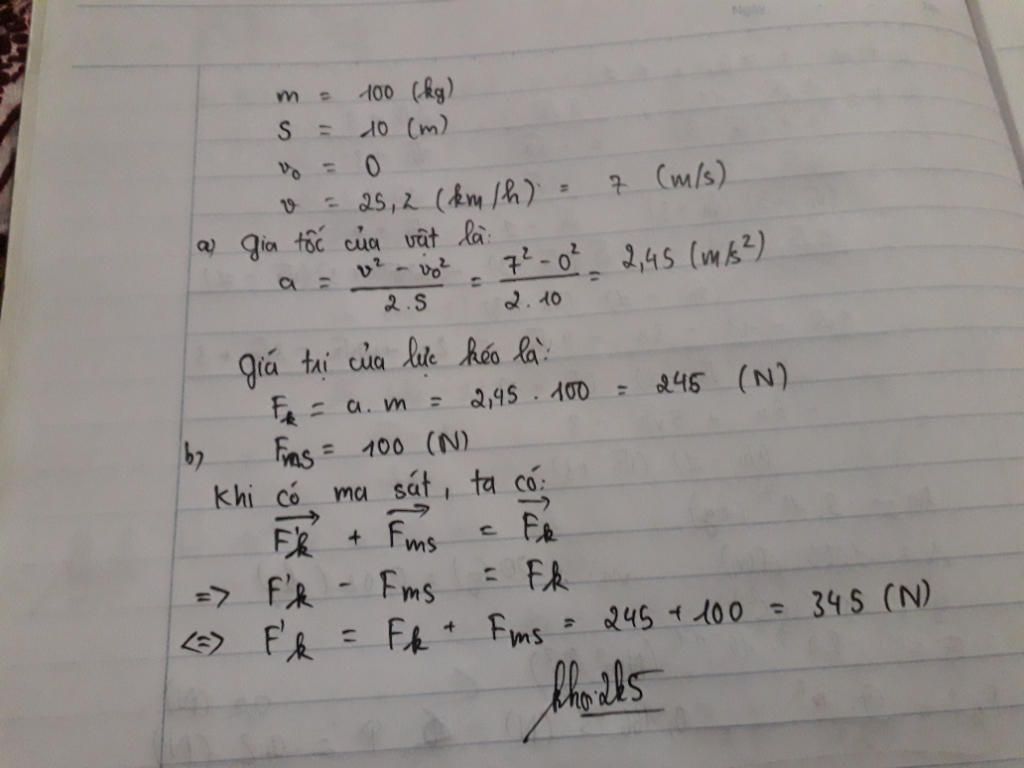 Ngày
m = 100 (kg)
S = 10 (m)
v₀ = 0
v = 25,2 (km/h) = 7 (m/s)
a) Gia tốc của vật là:
a = (v² - v₀²)/(2.S) = (7² - 0²)/(2.10) = 2,45 (m/s²)
Giá trị của lực kéo là:
Fk = a.m = 2,45 . 100 = 245 (N)
b) Fms = 100 (N)
Khi có ma sát, ta có:
F'k→ + Fms→ = Fk→
=> F'k - Fms = Fk
<=> F'k = Fk + Fms = 245 + 100 = 345 (N)
khoi2k5